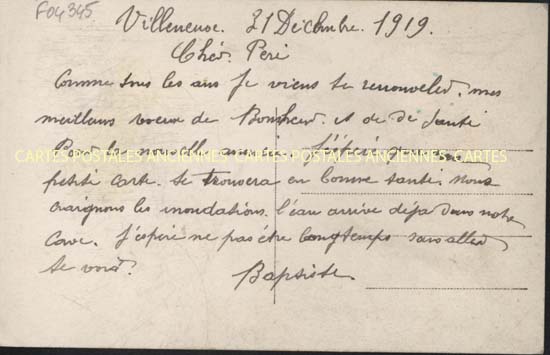 F04345
Villeneuve. 31 Décembre. 1919.
Chér. Peré
Comme tous les ans Je viens te renouveler. mes
meilleurs voeux de Bonheur. et de de santé
Pour la nouvelle année. J'espére que ma
CARTES POSTALES ANCIENNES CARTES POSTALES ANCIENNES CARTES
petite carte. te trouvera en bonne santé. nous
craignons les inondations. l'eau arrive déja dans notre
cave. J'espére ne pas étre longtemps sans aller
te voir.
Baptiste.